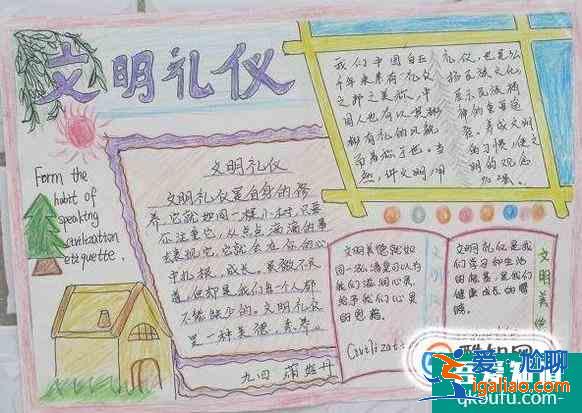 文明礼仪
我们中国自五
千年来素有"礼仪
之邦之美称,中
国人也向以其彬
彬有礼的风貌
而著称于世。当
然,讲文明用
礼仪,也是弘
扬民族文化,
展示民族精
神的重要途
径。养成文明
的习惯,使文
明的观念
Form the
habit of
speaking
civilization
etiquette.
文明礼仪
文明礼仪是自身的修
养,它就如同一棵小树,只要
你注重它,从点点滴滴的事
去表现它,它就会在你的心
中扎根,成长。虽微不足
道,但却是我们每个人都
不能缺少的。文明礼仪
是一种美德,素养。
九四
文明美德就如
同一泓清泉可以为我
们滋润心灵,
给予我们心灵
的慰藉。
文明礼仪是我
们学习和生活
的根基,是我们
健康成长的臂
膀。
文明美德
爱尬聊
jigaliao.com
qkoufu.com